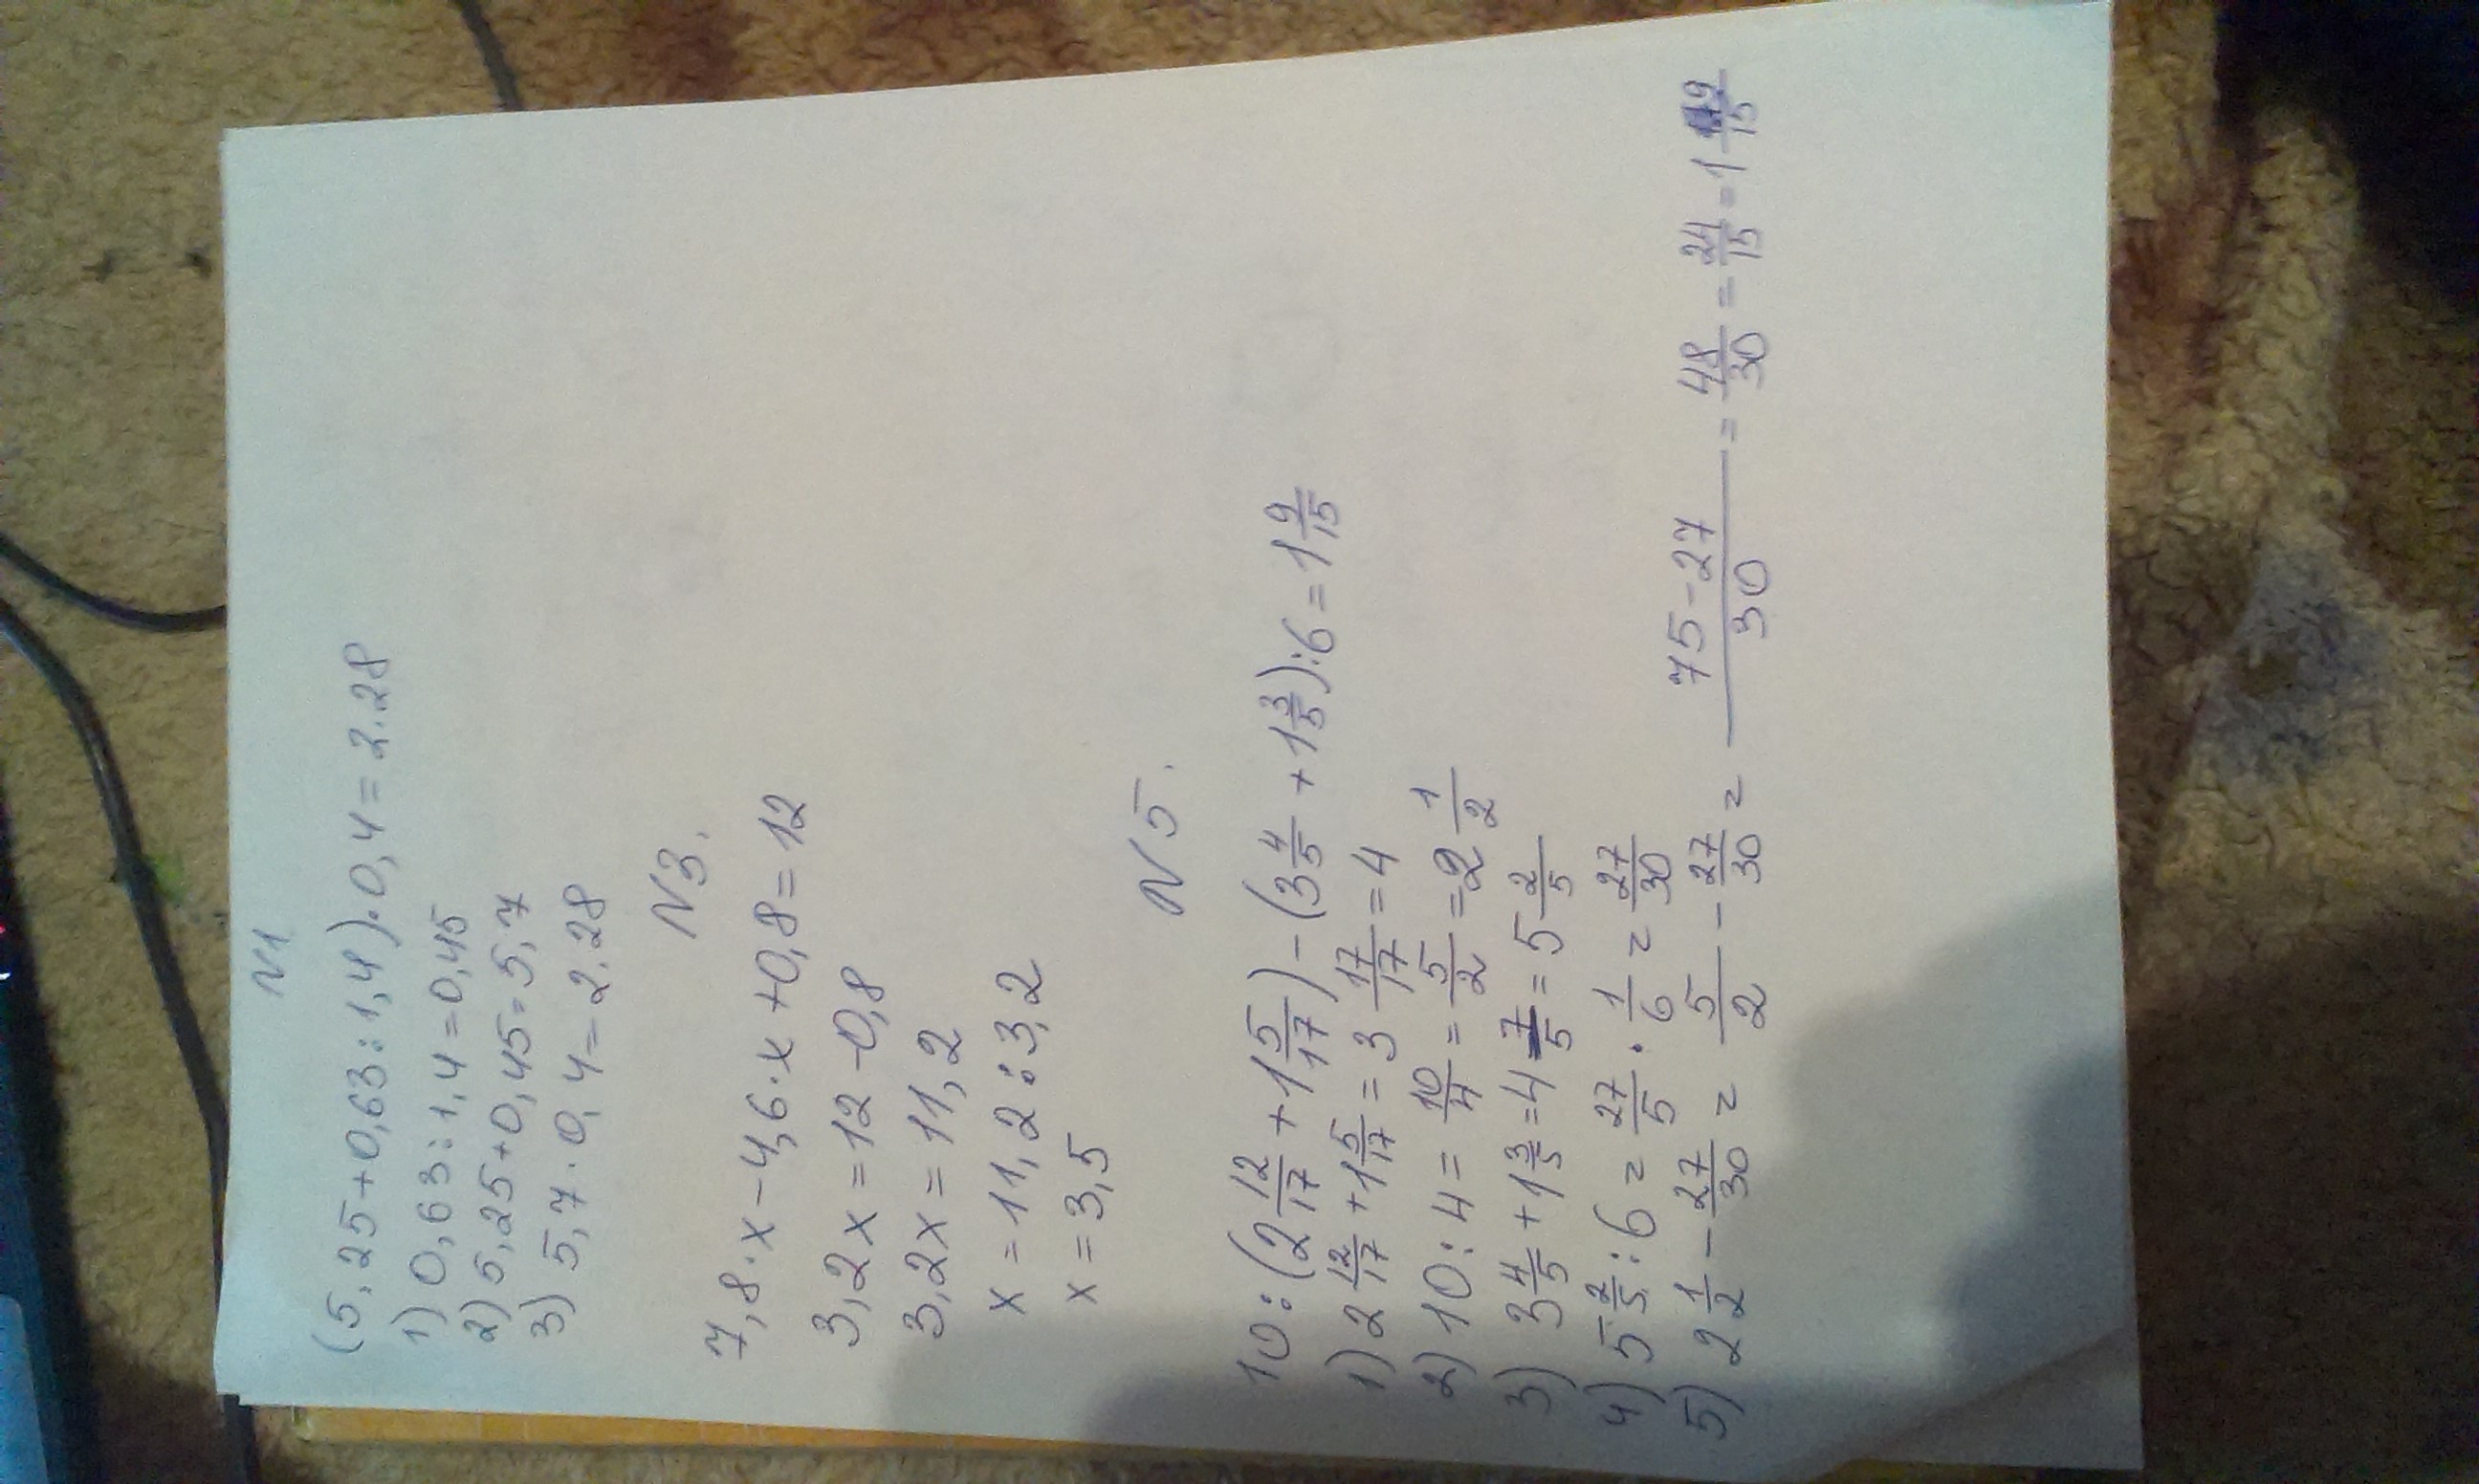 N1
(5,25+0,63:1,4)·0,4=2.28
1) 0,63:1,4=0,45
2) 5,25+0,45=5,7
3) 5,7·0,4=2.28
N3.
7,8·x-4,6·x+0,8=12
3,2x=12-0,8
3,2x=11,2
x=11,2:3,2
x=3,5
N5.
10:(2 12/17+1 5/17)-(3 4/5+1 3/5):6=1 9/15
1) 2 12/17+1 5/17=3 17/17=4
2) 10:4=10/4=5/2=2 1/2
3) 3 4/5+1 3/5=4 7/5=5 2/5
4) 5 2/5:6=27/5·1/6=27/30
5) 2 1/2-27/30=5/2-27/30=75-27/30=48/30=24/15=1 9/15